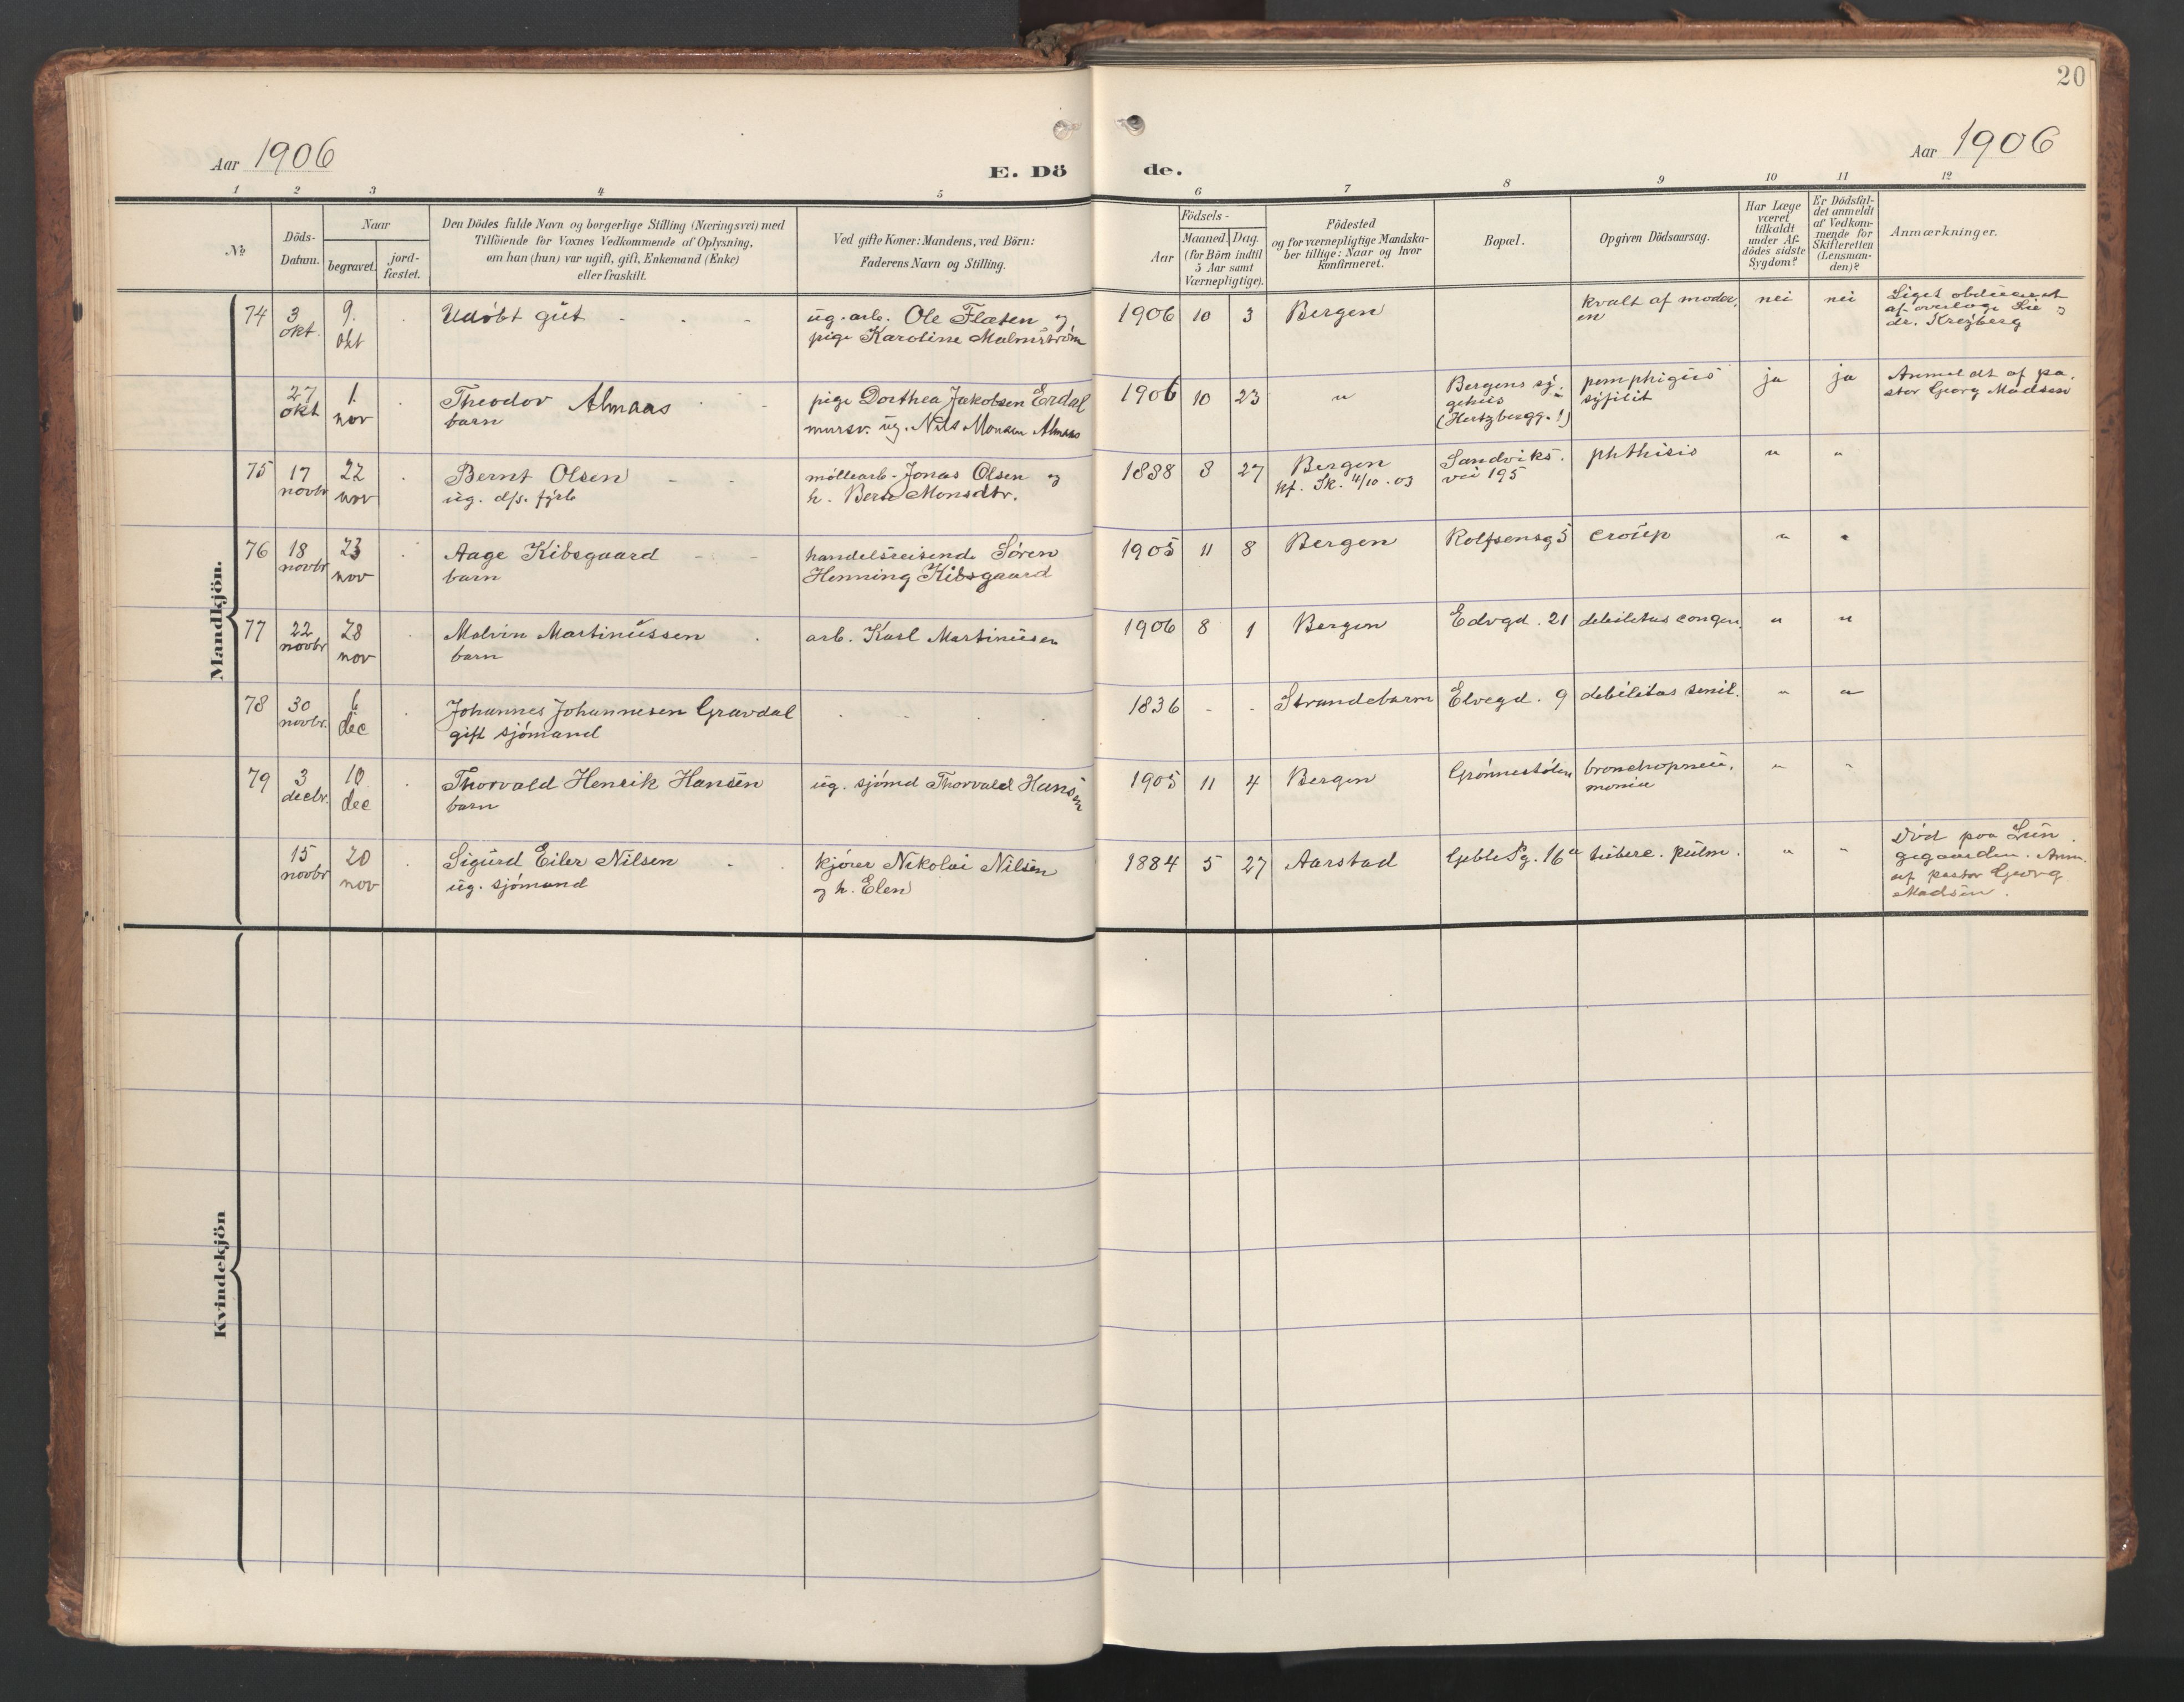 20
Aar 1906
E. Dö
de.
Aar 1906
1 2 3 4 5 6 7 8 9 10 11 12
No
Döds-
Datum.
Naar
begravet.
jord-
fæstet.
Den Dödes fulde Navn og borgerlige Stilling (Næringsvei) med
Tilföiende for Voxnes Vedkommende af Oplysning,
om han (hun) var ugift, gift, Enkemand (Enke)
eller fraskilt.
Ved gifte Koner: Mandens, ved Börn:
Faderens Navn og Stilling.
Födsels-
Aar
Maaned. Dag.
(for Börn indtil
5 Aar samt
Værnepligtige).
Födested
og for værnepligtige Mandska-
ber tillige: Naar og hvor
konfirmeret.
Bopæl.
Opgiven Dödsaarsag.
Har Læge
været
tilkaldt
under Af-
dödes sidste
Sygdom?
Er Dödsfal-
det anmeldt
af Vedkom-
mende for
Skifteretten
(Lensman-
den)?
Anmærkninger.
Mandkjön.
74
3
okt.
9.
okt
Udøbt gut
ug. arb. Ole Flaten og
pige Karoline Malmström
1906 10 3
Bergen
kvalt af moder,
en
nei
nei
Liget obduceret
af overlæge Lie og
dr. Kreyberg
27
okt
1.
nov
Theodor Almaas
barn
pige Dorthea Jakobsen Erdal
mursv. ug. Nils Monsen Almaas
1906 10 23
"
Bergens sy-
gehus
(Hertzbergg. 1)
pemphigus
syfilit
ja
ja
Anmeldt af pa-
stor Georg Madsen
75
17
novbr
22
nov
Bernt Olsen
ug. d/s. fyrb
møllearb. Jonas Olsen og
h. Berte Monsdtr.
1888 8 27
Bergen
kf. Sk. 4/10. 03
Sandviks.
vei 195
phthisis
"
"
76
18
novbr
23
nov
Aage Kibsgaard
barn
handelsreisende Søren
Henning Kibsgaard
1905 11 8
Bergen
Rolfsensg 5
croup
"
"
77
22
novbr
28
nov
Malvin Martinussen
barn
arb. Karl Martinusen
1906 8 1
Bergen
Edvgd. 21
debilitas congen.
"
"
78
30
novbr.
6
dec
Johannes Johannesen Gravdal
gift sjømand
1836 - -
Strandebarm
Elvegd. 9
debilitas senil.
"
"
79
3
decbr.
10
dec
Thorvald Henrik Hansen
barn
ug. sjømd Thorvald Hansen
1905 11 4
Bergen
Grønnestølen
bronchopneu,
monia
"
"
15
novbr
20
nov
Sigurd Eiler Nilsen
ug. sjømand
kjører Nikolai Nilsen
og h. Elen
1884 5 27
Aarstad
Geble Pg. 16a
tuberc. pulm.
"
"
Død paa Lun
gegaarden. Anm.
af pastor Georg
Madsen.
Kvindekjön